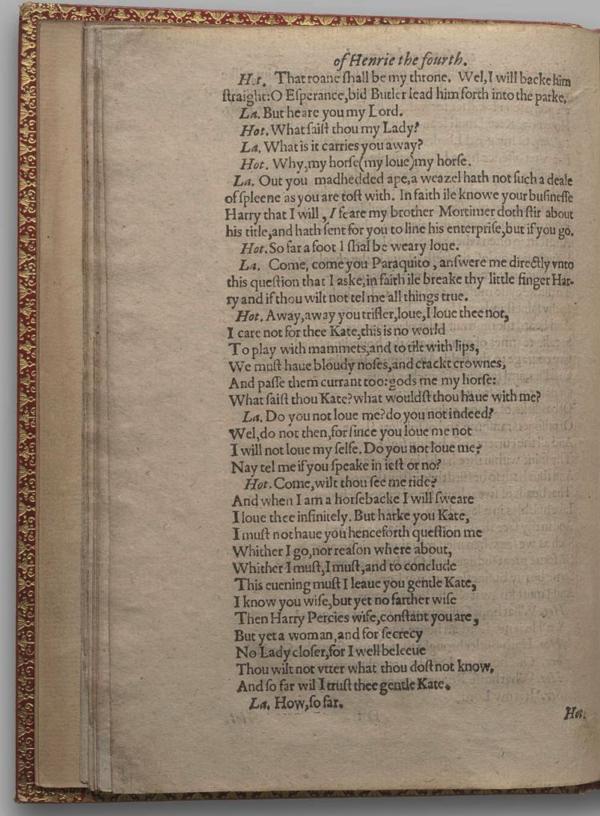 of Henrie the fourth.
Hot. That roane ſhall be my throne. Wel, I will backe him
ſtraight: O Eſperance, bid Butler lead him forth into the parke.
La. But heare you my Lord.
Hot. What ſaiſt thou my Lady?
La. What is it carries you away?
Hot. Why, my horſe (my loue) my horſe.
La. Out you madhedded ape, a weazel hath not ſuch a deale
of ſpleene as you are toſt with. In faith ile knowe your buſineſſe
Harry that I will, I feare my brother Mortimer doth ſtir about
his title, and hath ſent for you to line his enterpriſe, but if you go.
Hot. So far a foot I ſhal be weary loue.
La. Come, come you Paraquito, anſwere me directly vnto
this queſtion that I aske, in faith ile breake thy little finger Har-
ry and if thou wilt not tel me all things true.
Hot. Away, away you trifler, loue, I loue thee not,
I care not for thee Kate, this is no world
To play with mammets, and to tilt with lips,
We muſt haue bloudy noſes, and crackt crownes,
And paſſe them currant too: gods me my horſe:
What ſaiſt thou Kate? what wouldſt thou haue with me?
La. Do you not loue me? do you not indeed?
Wel, do not then, for ſince you loue me not
I will not loue my ſelfe. Do you not loue me?
Nay tel me if you ſpeake in ieſt or no?
Hot. Come, wilt thou ſee me ride?
And when I am a horſebacke I will ſweare
I loue thee infinitely. But harke you Kate,
I muſt not haue you henceforth queſtion me
Whither I go, nor reaſon where about,
Whither I muſt, I muſt, and to conclude
This euening muſt I leaue you gentle Kate,
I know you wiſe, but yet no farther wiſe
Then Harry Percies wife, conſtant you are,
But yet a woman, and for ſecrecy
No Lady cloſer, for I well beleeue
Thou wilt not vtter what thou doſt not know,
And ſo far wil I truſt thee gentle Kate.
La. How, ſo far.
Hot.